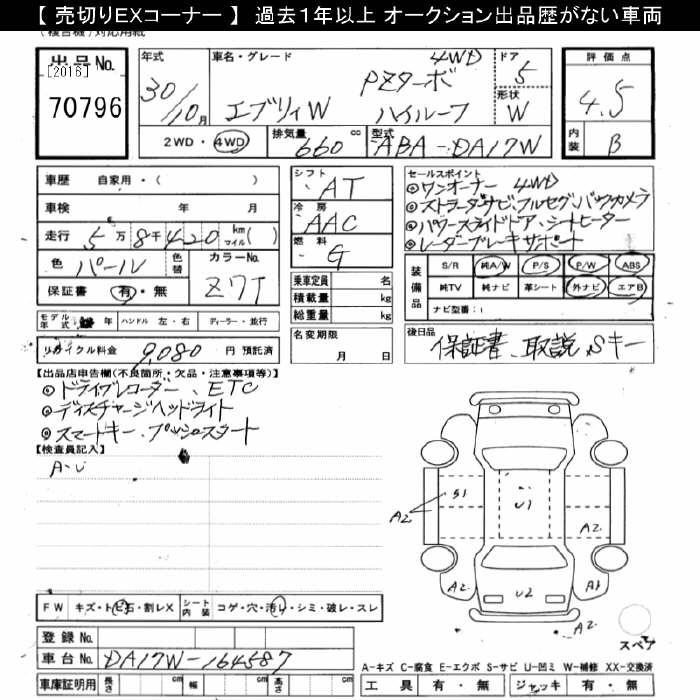 【 売切りEXコーナー 】 過去１年以上 オークション出品歴がない車両
（複合機）対応用紙
出品No. [2016] 70796
年式 30/10月
車名・グレード 4WD
エブリィW PZターボ ハイルーフ
ドア 5
形状 W
評価点 4.5
内装 B
2WD・4WD
排気量 660 cc
型式 ABA-DA17W
車歴 自家用・( )
車検 年 月
走行 5万8千420 km マイル( )
色 パール 色替
カラーNo. Z7T
保証書 有・無
シフト AT
冷房 AAC
燃料 G
乗車定員 名
積載量 kg
総重量 kg
名変期限 月 日
セールスポイント
◎ワンオーナー 4WD
◎ストラーダナビ、フルセグ、バックカメラ
◎パワースライドドア、シートヒーター
◎レーダーブレーキサポート
装備品 S/R 純A/W P/S P/W ABS
純TV 純ナビ 革シート 外ナビ エアB
ナビ型番：
モデル年式 年 ハンドル 左・右 ディーラー・並行
リサイクル料金 9,080 円 預託済
後日品 保証書、取説、Sキー
【出品店申告欄(不良箇所・欠品・注意事項等)】
◎ドライブレコーダー、ETC
◎ディスチャージヘッドライト
◎スマートキー、プッシュスタート
【検査員記入】
A・U
A2 S1 U1 A2
A2 U2 A1
A2
スペア
FW キズ・トビ石・割レX シート内装 コゲ・穴・汚レ・シミ・破レ・スレ
登録No.
車台No. DA17W-164587
車庫証明用 長さ cm 幅 cm 高さ cm
A-キズ C-腐食 E-エクボ S-サビ U-凹ミ W-補修 XX-交換済
工具 有・無 ジャッキ 有・無